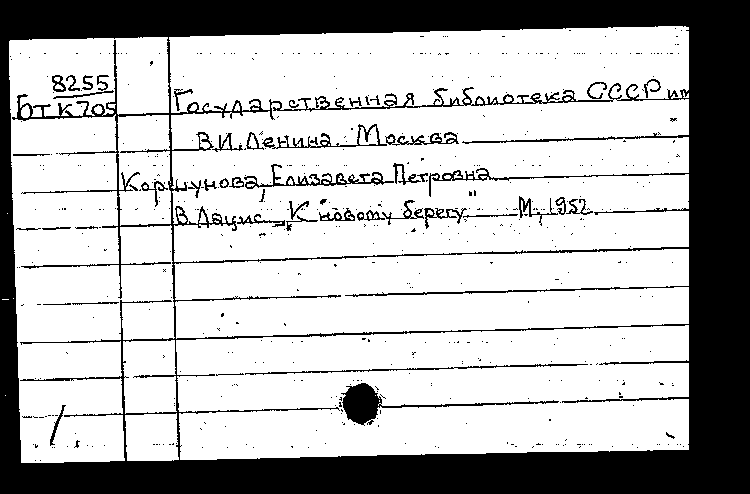 8255
БТК705
Государственная библиотека СССР им
В.И.Ленина. Москва
Коршунова, Елизавета Петровна
В. Лацис „К новому берегу" М., 1952.
1